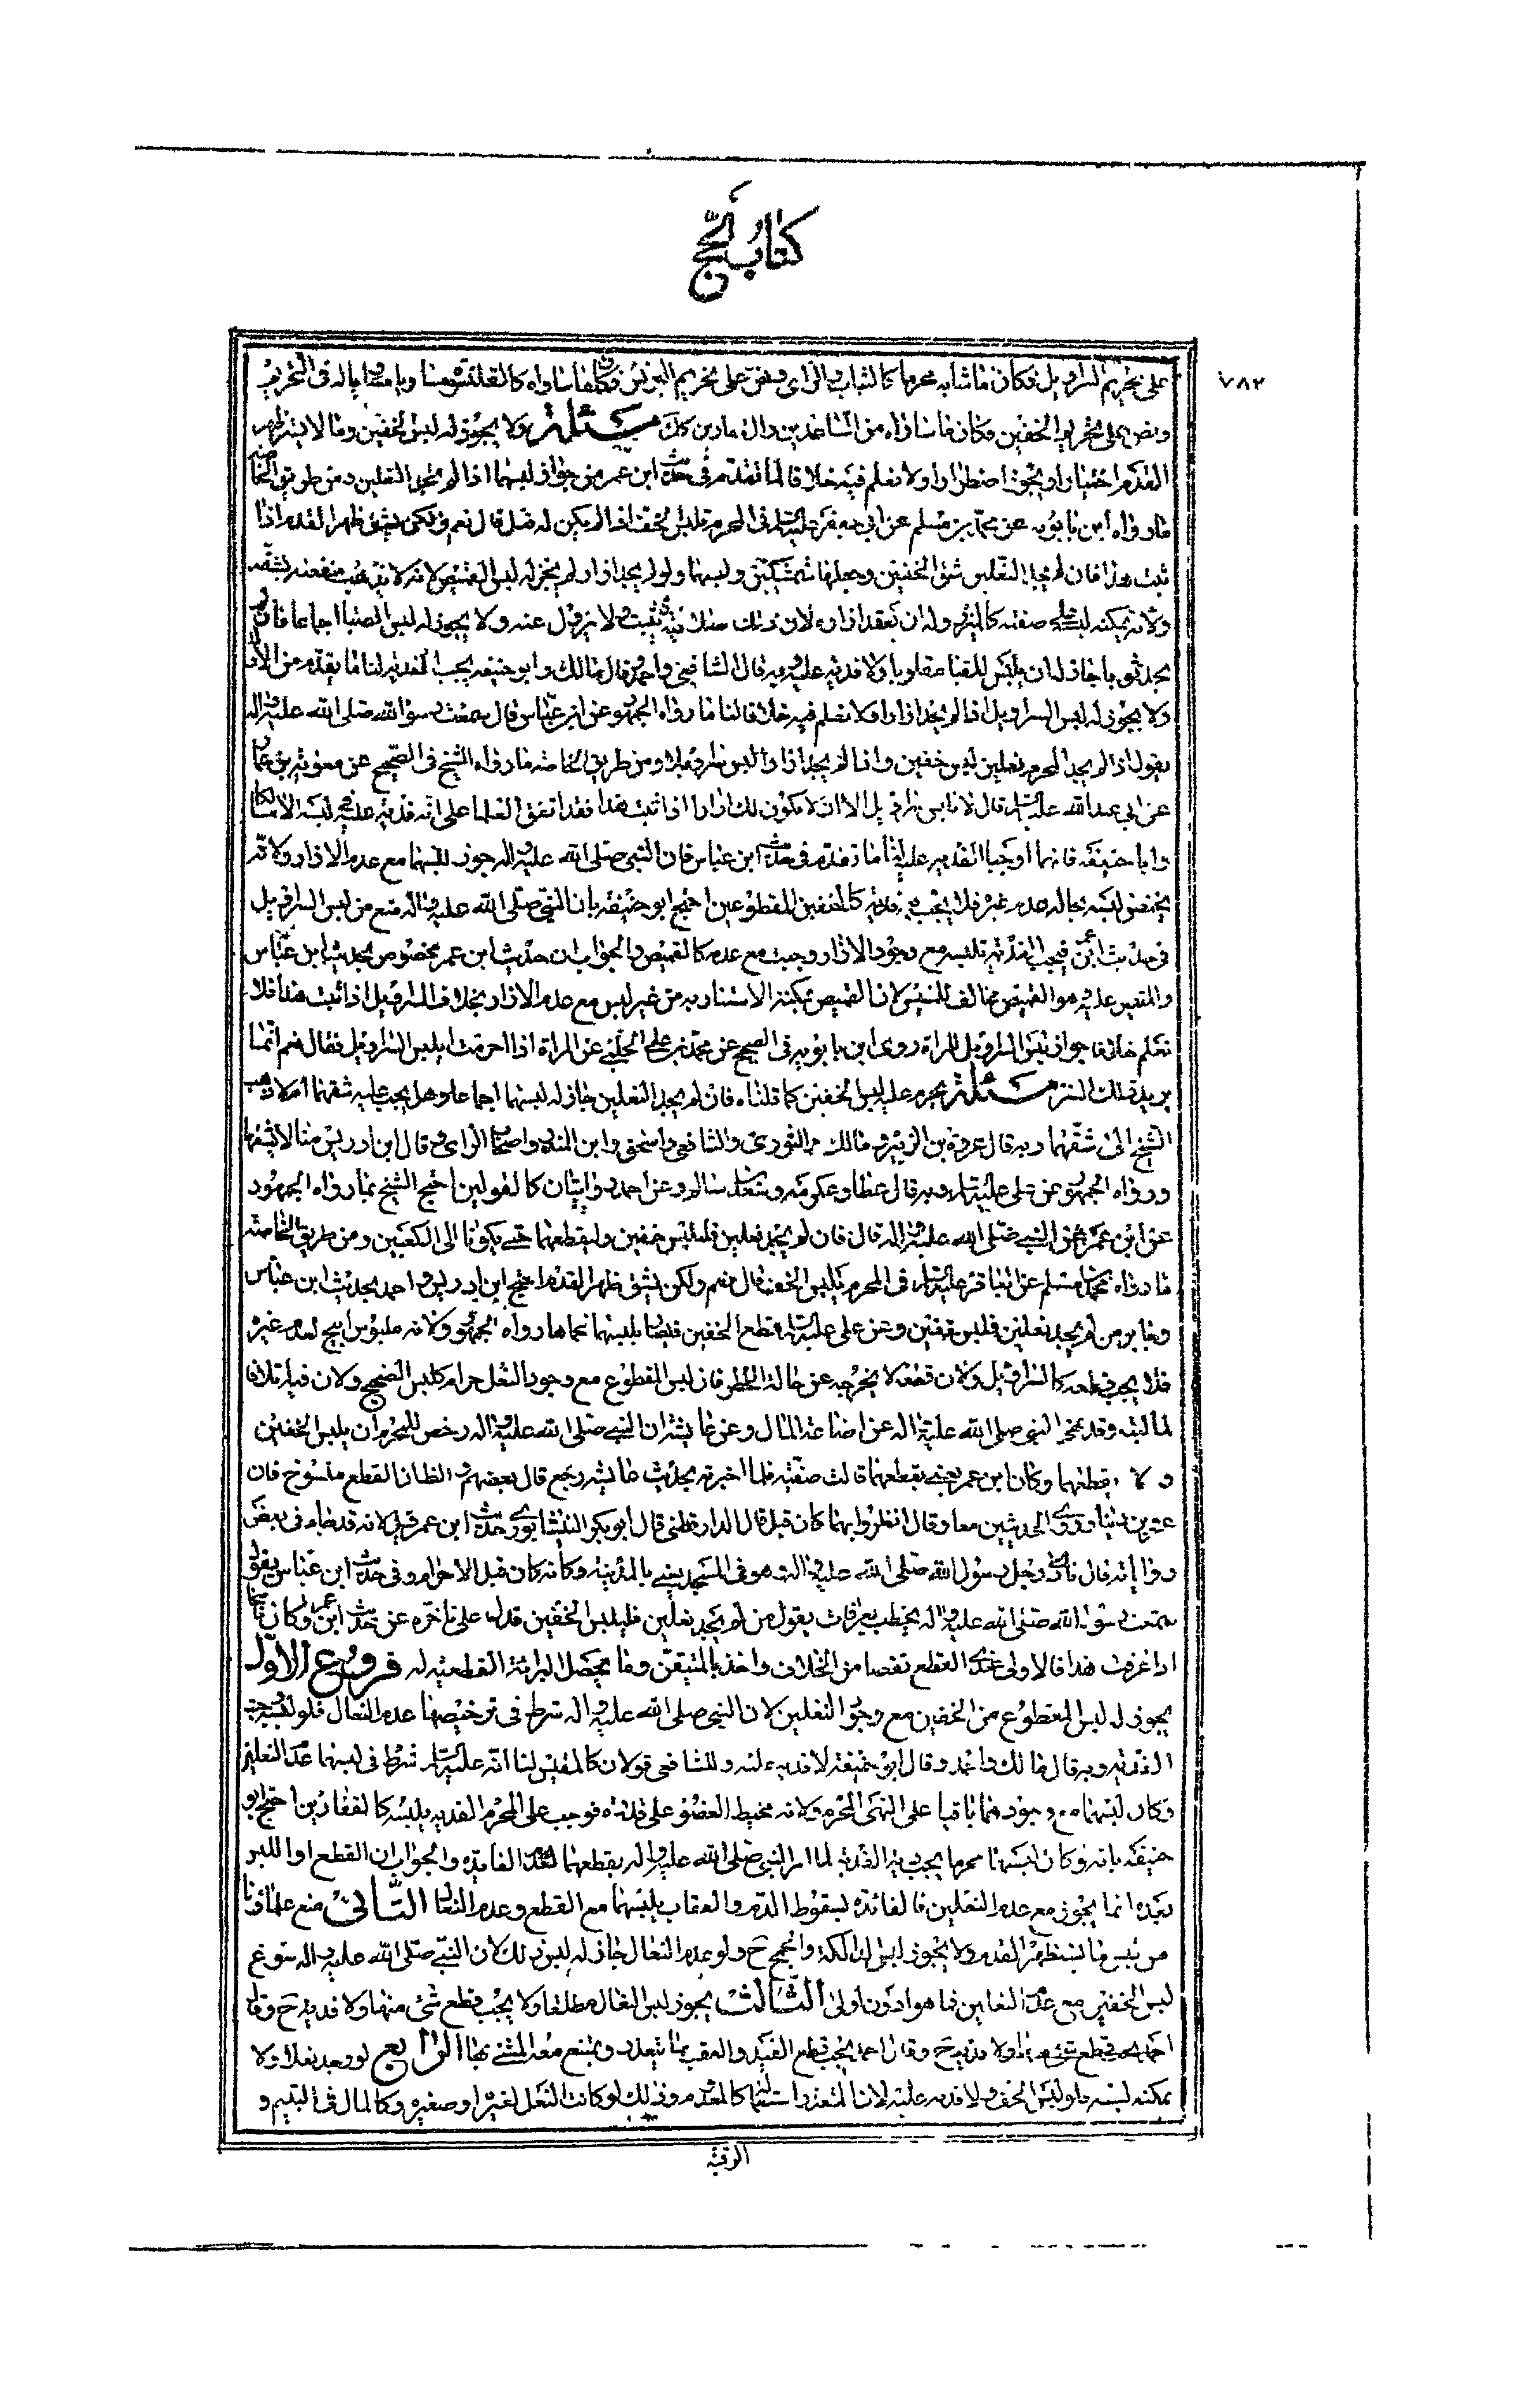 كتاب الحج
٧٨٢
على تحريم السراويل فكان ما شابه محرما كالتباب والراى ونص على تحريم البرنس فكان ما ساواه كالقلنسوة مساويا مشابها له فى التحريم
ونص على تحريم الخفين فكان ما ساواه من الساعدين والد كذلك مسئلة ولا يجوز له لبس الخفين وما لا يستر ظهر
القدم اختيارا ويجوز اضطرارا ولا نعلم فيه خلافا لما تقدم فى حديث ابن عمر من جواز لبسهما اذا لم يجد النعلين ومن طريق الخاصة
ما رواه ابن بابويه عن محمد بن مسلم عن ابى جعفر عليه السلم فى المحرم يلبس الخف اذا لم يكن له نعل قال نعم ولكن يشق ظهر القدم اذا
ثبت هذا فان لم يجد النعلين شق الخفين وجعلهما شمشكين ولبسهما ولو لم يجد ازارا لم يجز له لبس القميص لانه لا تذهب منفعته بشقه
ولانه يمكنه لبسه على صفته كالمئزر وله ان يعقد ازاره لان ذلك يثبت ولا يزول عنه ولا يجوز له لبس القبا اجماعا فان لم
يجد ثوبا جاز له ان يلبس القبا مقلوبا ولا فدية عليه وبه قال الشافعى واحمد وقال مالك وابو حنيفه يجب الفدية لنا ما تقدم من الاذن
ولا يجوز له لبس السراويل اذا لم يجد ازارا ولا نعلم فيه خلافا لنا ما رواه الجمهور عن ابن عباس قال سمعت رسول الله صلى الله عليه واله
يقول اذا لم يجد المحرم نعلين لبس خفين واذا لم يجد ازارا لبس سراويلا ومن طريق الخاصة ما رواه الشيخ فى الصحيح عن معوية بن عمار
عن ابى عبد الله عليه السلم قال لا تلبس سراويل الا ان لا يكون لك ازار اذا ثبت هذا فقد اتفق العلما على انه لا فدية عليه فى لبسه الا مالكا
وابا حنيفة فانهما اوجبا الفدية عليه لنا ما تقدم فى حديث ابن عباس فان النبى صلى الله عليه واله جوز لبسهما مع عدم الازار ولانه
يختص لبسه بحاله عدم غيره فلا يجب به فدية كالخفين المقطوعين احتج ابو حنيفه بان النبى صلى الله عليه واله منع من لبس السراويل
فى حديث ابن عمر فيجب الفدية بلبسه مع وجود الازار وجبت مع عدمه كالقميص والجواب ان حديث ابن عمر مخصوص بحديث ابن عباس
والمقيس عليه هو القميص مخالف للمقيس لان القميص يمكنه الاستتار به من غير لبس مع عدم الازار بخلاف السراويل اذا ثبت هذا فلا
نعلم خلافا فى جواز لبس السراويل للمراة روى ابن بابويه فى الصحيح عن محمد بن على الحلبى عن المراة اذا احرمت ايلبس السراويل فقال نعم انما
يريد بذلك الستر مسئلة يحرم عليه لبس الخفين كما قلناه فان لم يجد النعلين جاز له لبسهما اجماعا وهل يجب عليه شقهما ام لا ذهب
الشيخ الى شقهما وبه قال عروة بن الزبير ومالك والثورى والشافعى واسحق وابن المنذر واصحاب الراى وقال ابن ادريس منا لا يشقهما
ورواه الجمهور عن على عليه السلم وبه قال عطا وعكرمه وسعيد بن سالم وعن احمد روايتان كالقولين احتج الشيخ بما رواه الجمهور
عن ابن عمر عن النبى صلى الله عليه واله قال فان لم يجد نعلين فليلبس خفين وليقطعهما حتى يكونا الى الكعبين ومن طريق الخاصة
ما رواه محمد بن مسلم عن الباقر عليه السلم فى المحرم يلبس الخف قال نعم ولكن يشق ظهر القدم احتج ابن ادريس واحمد بحديث ابن عباس
وجابر من لم يجد نعلين فليلبس خفين وعن على عليه السلم قطع الخفين فساد يلبسهما كما هما رواه الجمهور ولانه ملبوس ابيح لعدم غيره
فلا يجب قطعه كالسراويل ولان قطعه لا يخرجه عن حالة الحظر فان لبس المقطوع مع وجود النعل حرام كلبس الصحيح ولان فيه اتلافا
لماليته وقد نهى النبى صلى الله عليه واله عن اضاعة المال وعن عايشة ان النبى صلى الله عليه واله رخص للمحرم ان يلبس الخفين
ولا يقطعهما وكان ابن عمر يفتى بقطعهما قالت صفية فلما اخبرته بحديث عايشه رجع قال بعضهم والظاهر ان القطع منسوخ فان
عمرو بن دينار روى الحديثين معا وقال انظروا ايهما كان قبل قال الدارقطنى قال ابو بكر النيشابورى حديث ابن عمر قبل لانه قد جاء فى بعض
رواياته قال نادى رجل رسول الله صلى الله عليه واله وهو فى المسجد يعنى بالمدينة وكانه كان قبل الاحرام وفى حديث ابن عباس يقول
سمعت رسول الله صلى الله عليه واله يخطب بعرفات يقول من لم يجد نعلين فليلبس الخفين فدل على تاخره عن حديث ابن عمر وكان ناسخا
اذا عرفت هذا فالاولى عندى القطع تفصيا من الخلاف واخذا بالمتيقن وما يحصل البرائة القطعية له فروع الاول
يجوز له لبس المقطوع من الخفين مع وجود النعلين لان النبى صلى الله عليه واله شرط فى ترخيصهما عدم النعال فلو لبسه وجبت
الفدية وبه قال مالك واحمد وقال ابو حنيفة لا فدية للبسه وللشافعى قولان كالمذهبين لنا انه عليه السلم شرط فى لبسهما عدم النعلين
وكان لبسهما مع وجودهما باقيا على النهى المحرم ولانه مخيط العضو على قدره فوجب على المحرم الفدية بلبسه كالقفازين احتج ابو
حنيفه بانه لو كان لبسهما محرما يجب به الفدية لما امر النبى صلى الله عليه واله بقطعهما لعدم الفايدة والجواب ان القطع او اللبس
بعده انما يجوز مع عدم النعلين فالفائدة سقوط الذم والعقاب بلبسهما مع القطع وعدم النعال الثانى منع علماؤنا
من لبس ما يستر ظهر القدم ولا يجوز لبس اللالكة والجمجم ح ولو عدم النعال جاز له لبس ذلك لان النبى صلى الله عليه واله سوغ
لبس الخفين مع عدم النعلين فما هو ادون اولى الثالث يجوز لبس النعال مطلقا ولا يجب قطع شئ منهما ولا فدية ح وقال
احمد يجب قطع شئ منها ولا فدية ح وقال احمد يجب قطع القيد والعقب مما يتعدد ويمتنع معه المشى بها الرابع لو وجد نعلا ولا
يمكنه لبسه فلو لبس الخف ولا فدية عليه لان المتعذر استعماله كالمعدم وذلك لو كانت النعل لغيره او صغيره وكالماء فى التيمم و
الرقبة